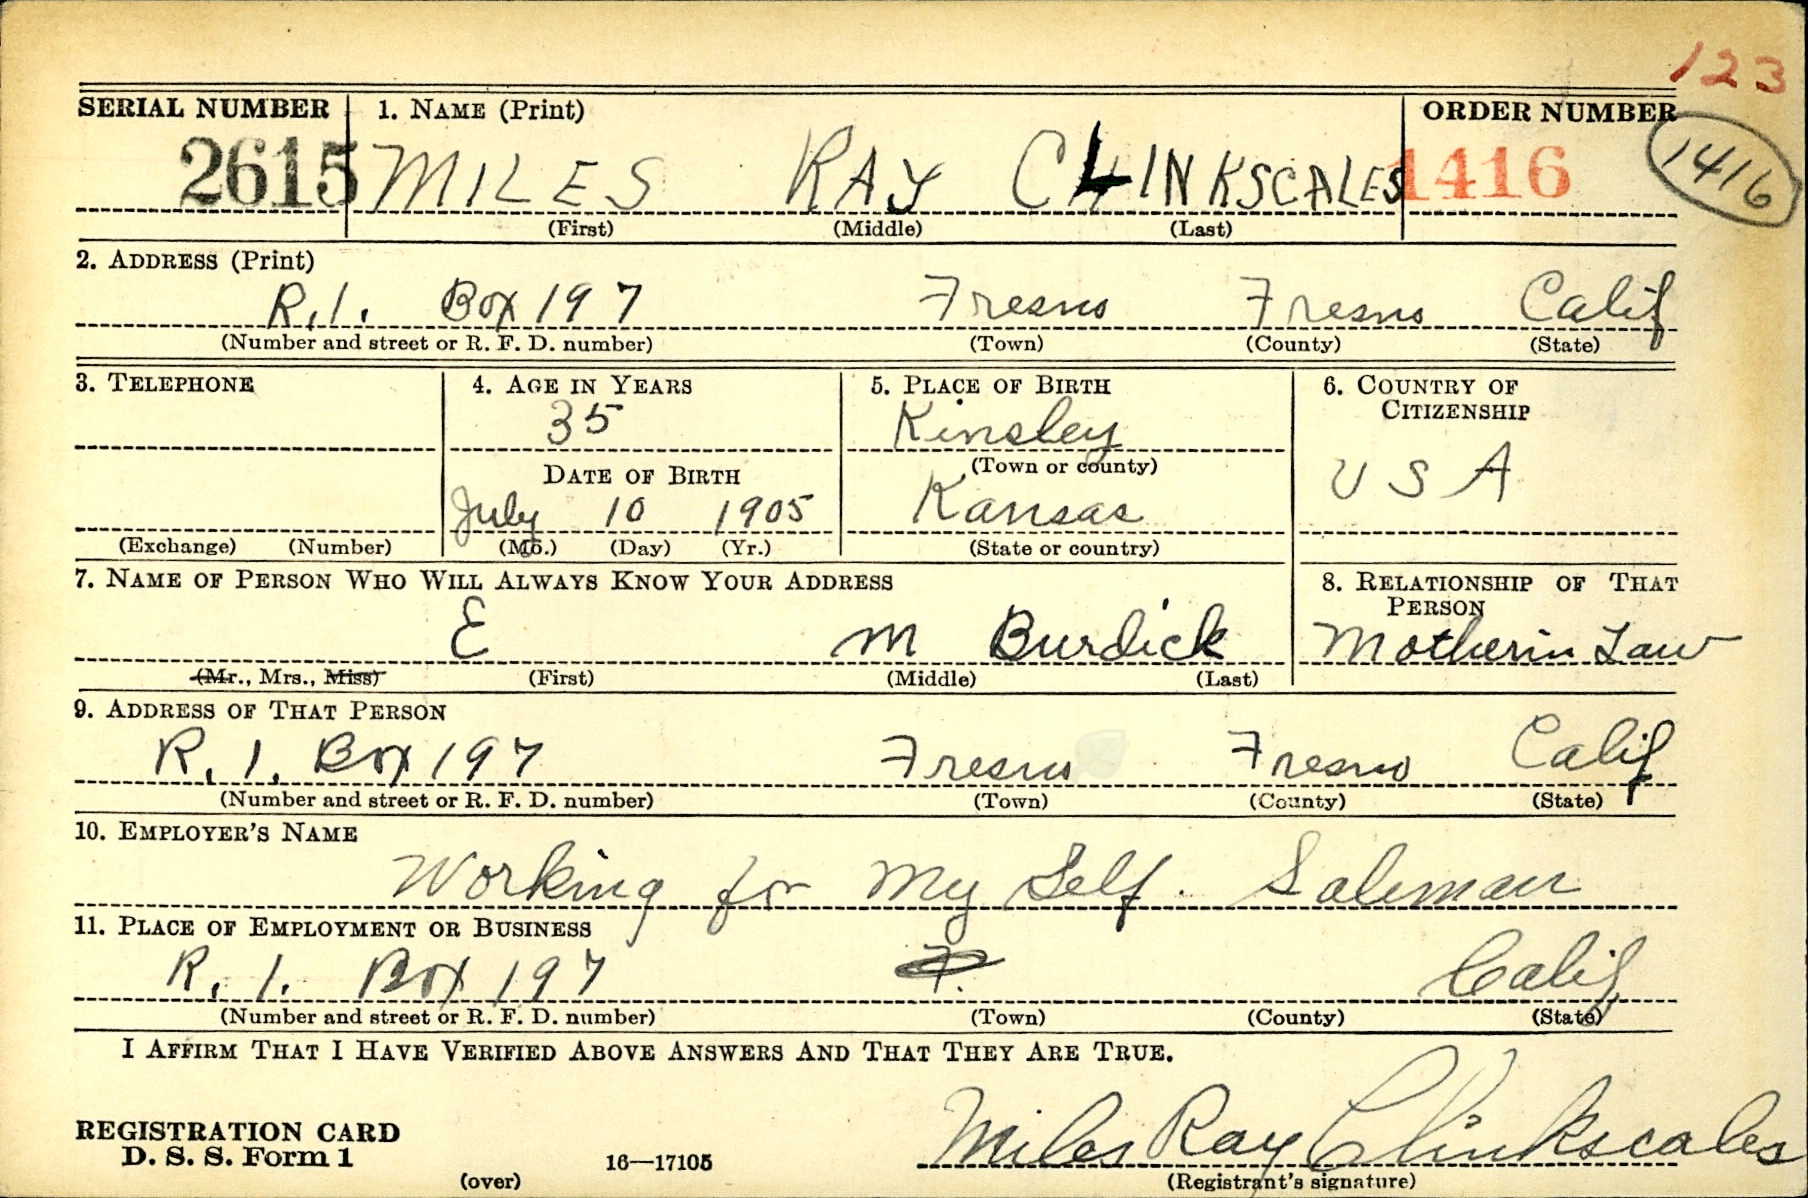 123
SERIAL NUMBER 1. NAME (Print) ORDER NUMBER
2615 MILES RAY CLINKSCALES 1416 1416
(First) (Middle) (Last)
2. ADDRESS (Print)
R.1. Box 197 Fresno Fresno Calif
(Number and street or R. F. D. number) (Town) (County) (State)
3. TELEPHONE 4. AGE IN YEARS 5. PLACE OF BIRTH 6. COUNTRY OF CITIZENSHIP
35 Kinsley
(Town or county)
DATE OF BIRTH USA
July 10 1905 Kansas
(Exchange) (Number) (Mo.) (Day) (Yr.) (State or country)
7. NAME OF PERSON WHO WILL ALWAYS KNOW YOUR ADDRESS 8. RELATIONSHIP OF THAT PERSON
E M Burdick Motherin Law
(Mr., Mrs., Miss) (First) (Middle) (Last)
9. ADDRESS OF THAT PERSON
R. 1. Box 197 Fresno Fresno Calif
(Number and street or R. F. D. number) (Town) (County) (State)
10. EMPLOYER'S NAME
Working for My Self. Saleman
11. PLACE OF EMPLOYMENT OR BUSINESS
R. 1. Box 197 F. Calif
(Number and street or R. F. D. number) (Town) (County) (State)
I AFFIRM THAT I HAVE VERIFIED ABOVE ANSWERS AND THAT THEY ARE TRUE.
REGISTRATION CARD
D. S. S. Form 1 Miles Ray Clinkscales
(over) 16—17105 (Registrant's signature)